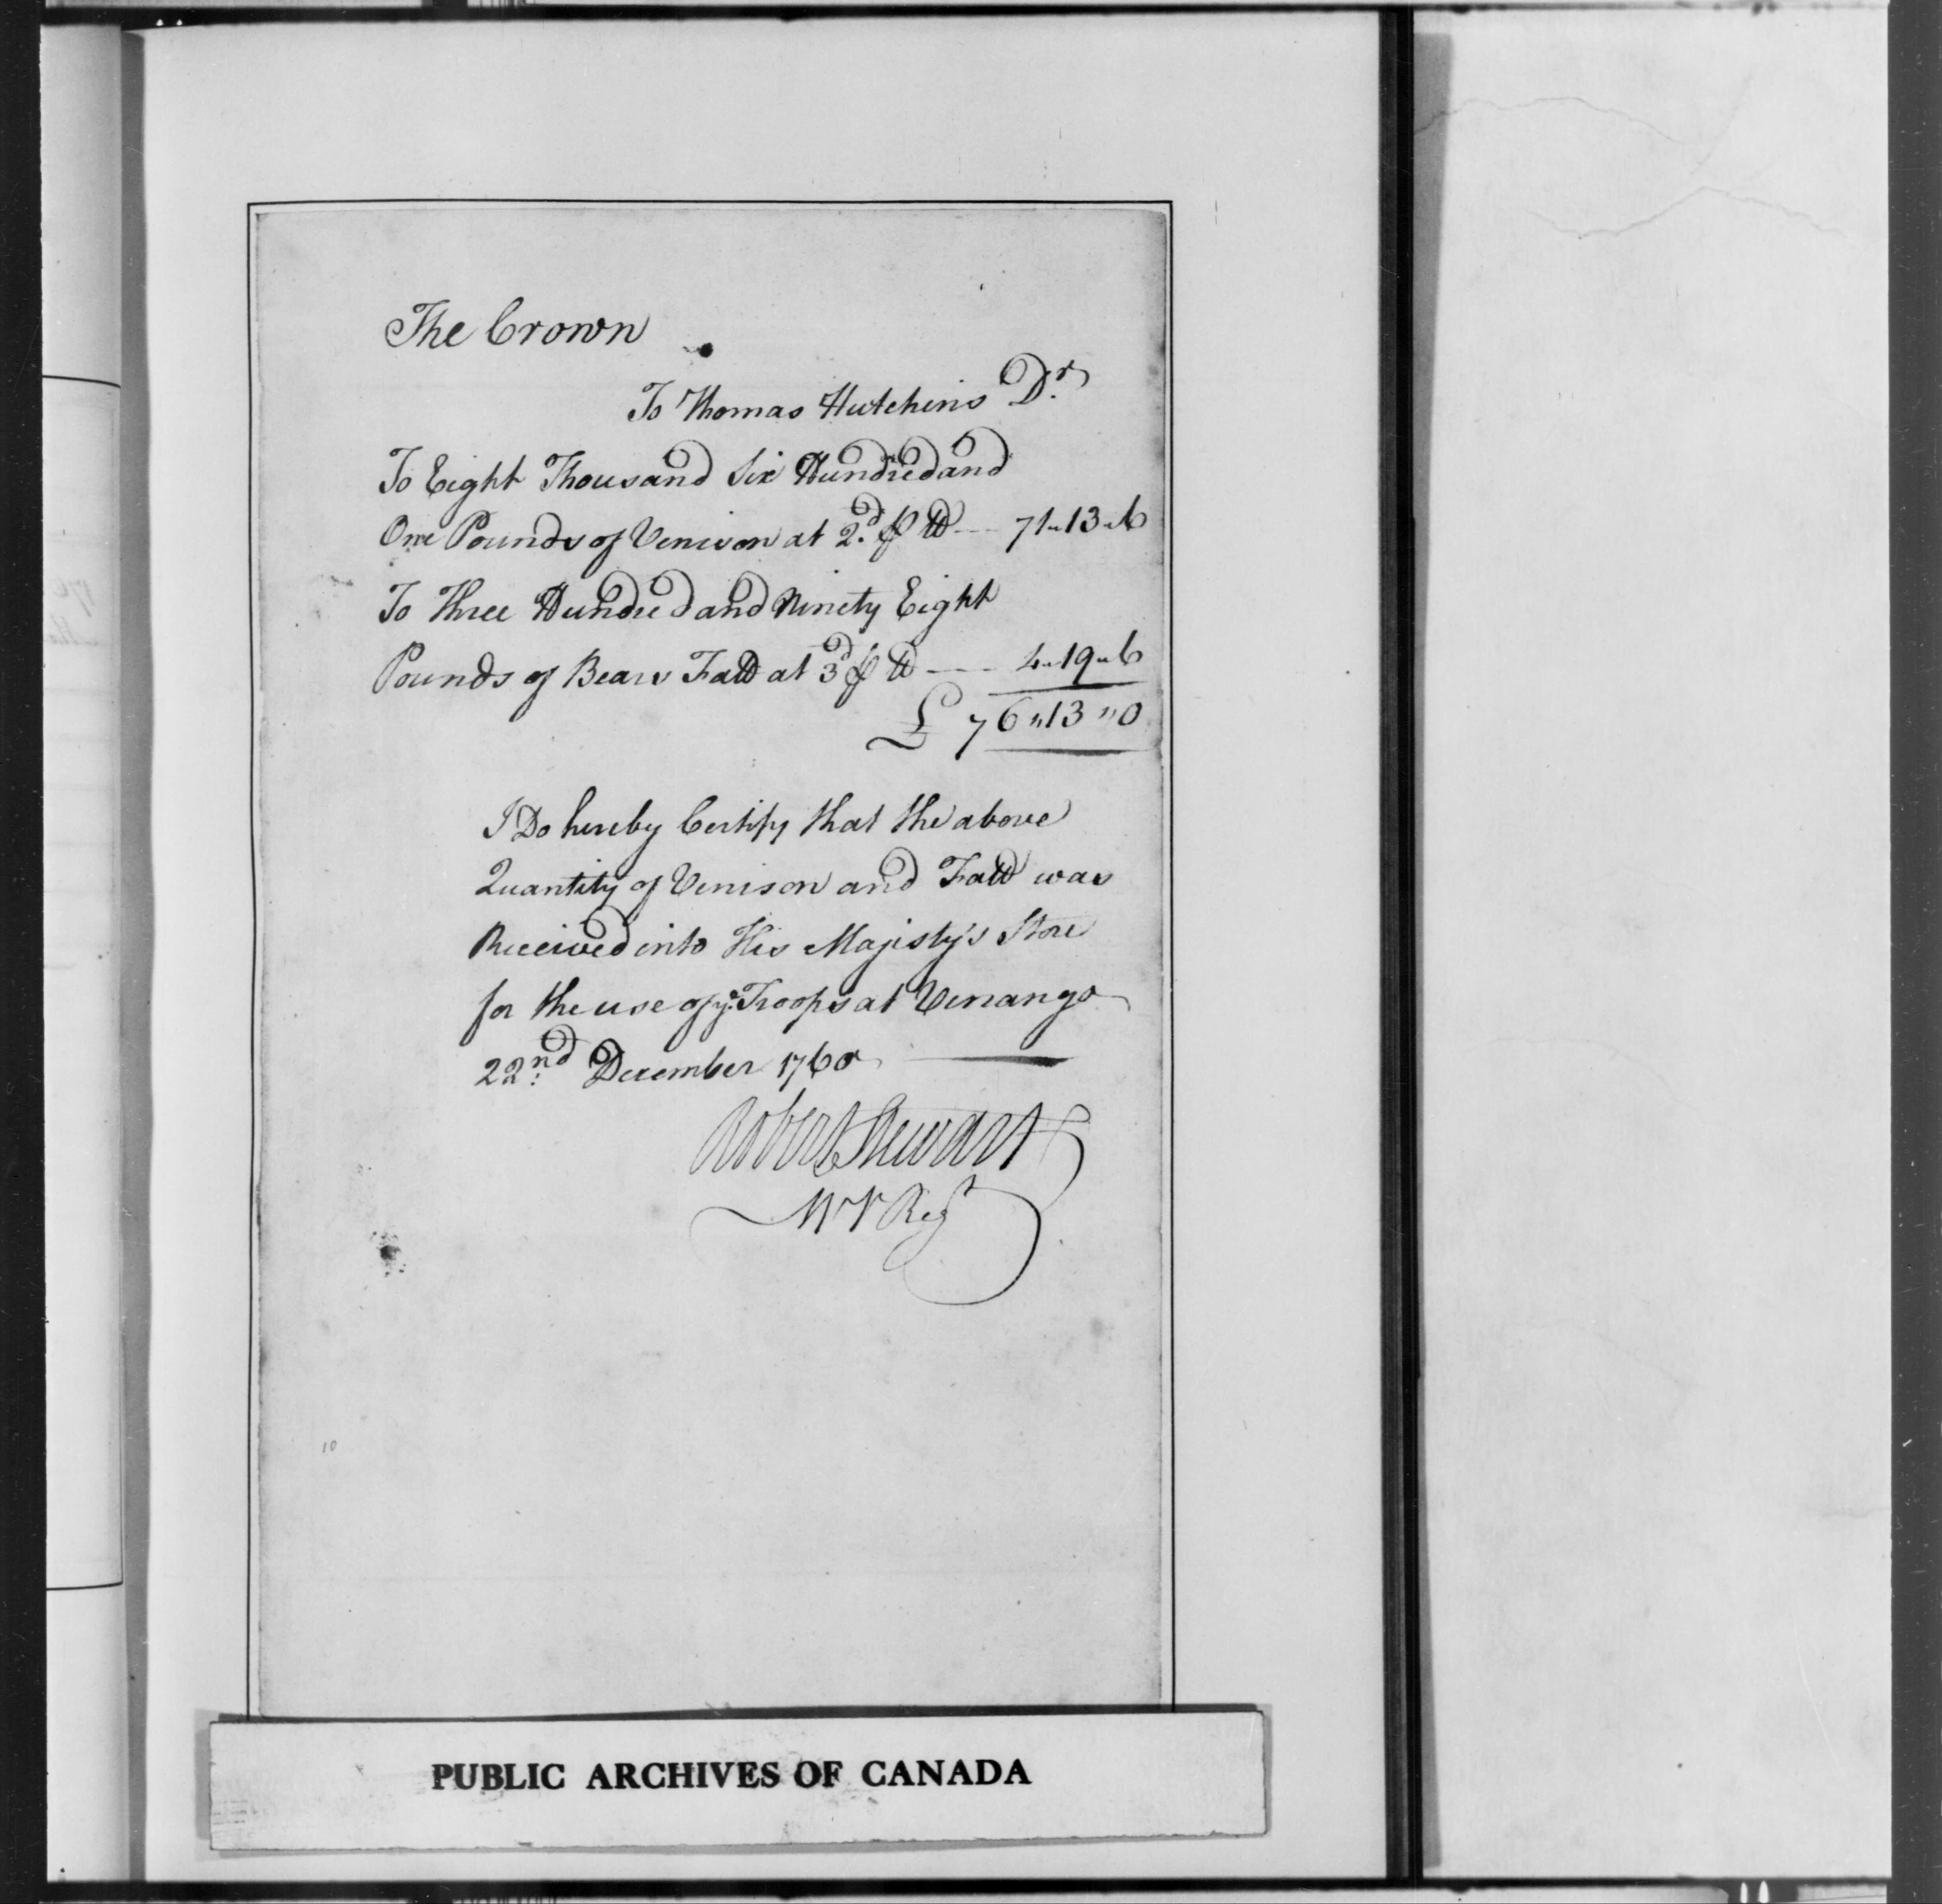 The Crown
To Thomas Hutchins Dr.
To Eight Thousand Six Hundred and
One Pounds of Venison at 2d. ⅌ ℔ --- 71"13"6
To Three Hundred and Ninety Eight
Pounds of Bears Fatt at 3d ⅌ ℔ --- 4"19"6
£ 76"13"0
I Do hereby Certify that the above
Quantity of Venison and Fatt was
Received into His Majisty's Store
for the use of ye. Troops at Venango
22nd: December 1760
Robert Stewart
10
PUBLIC ARCHIVES OF CANADA